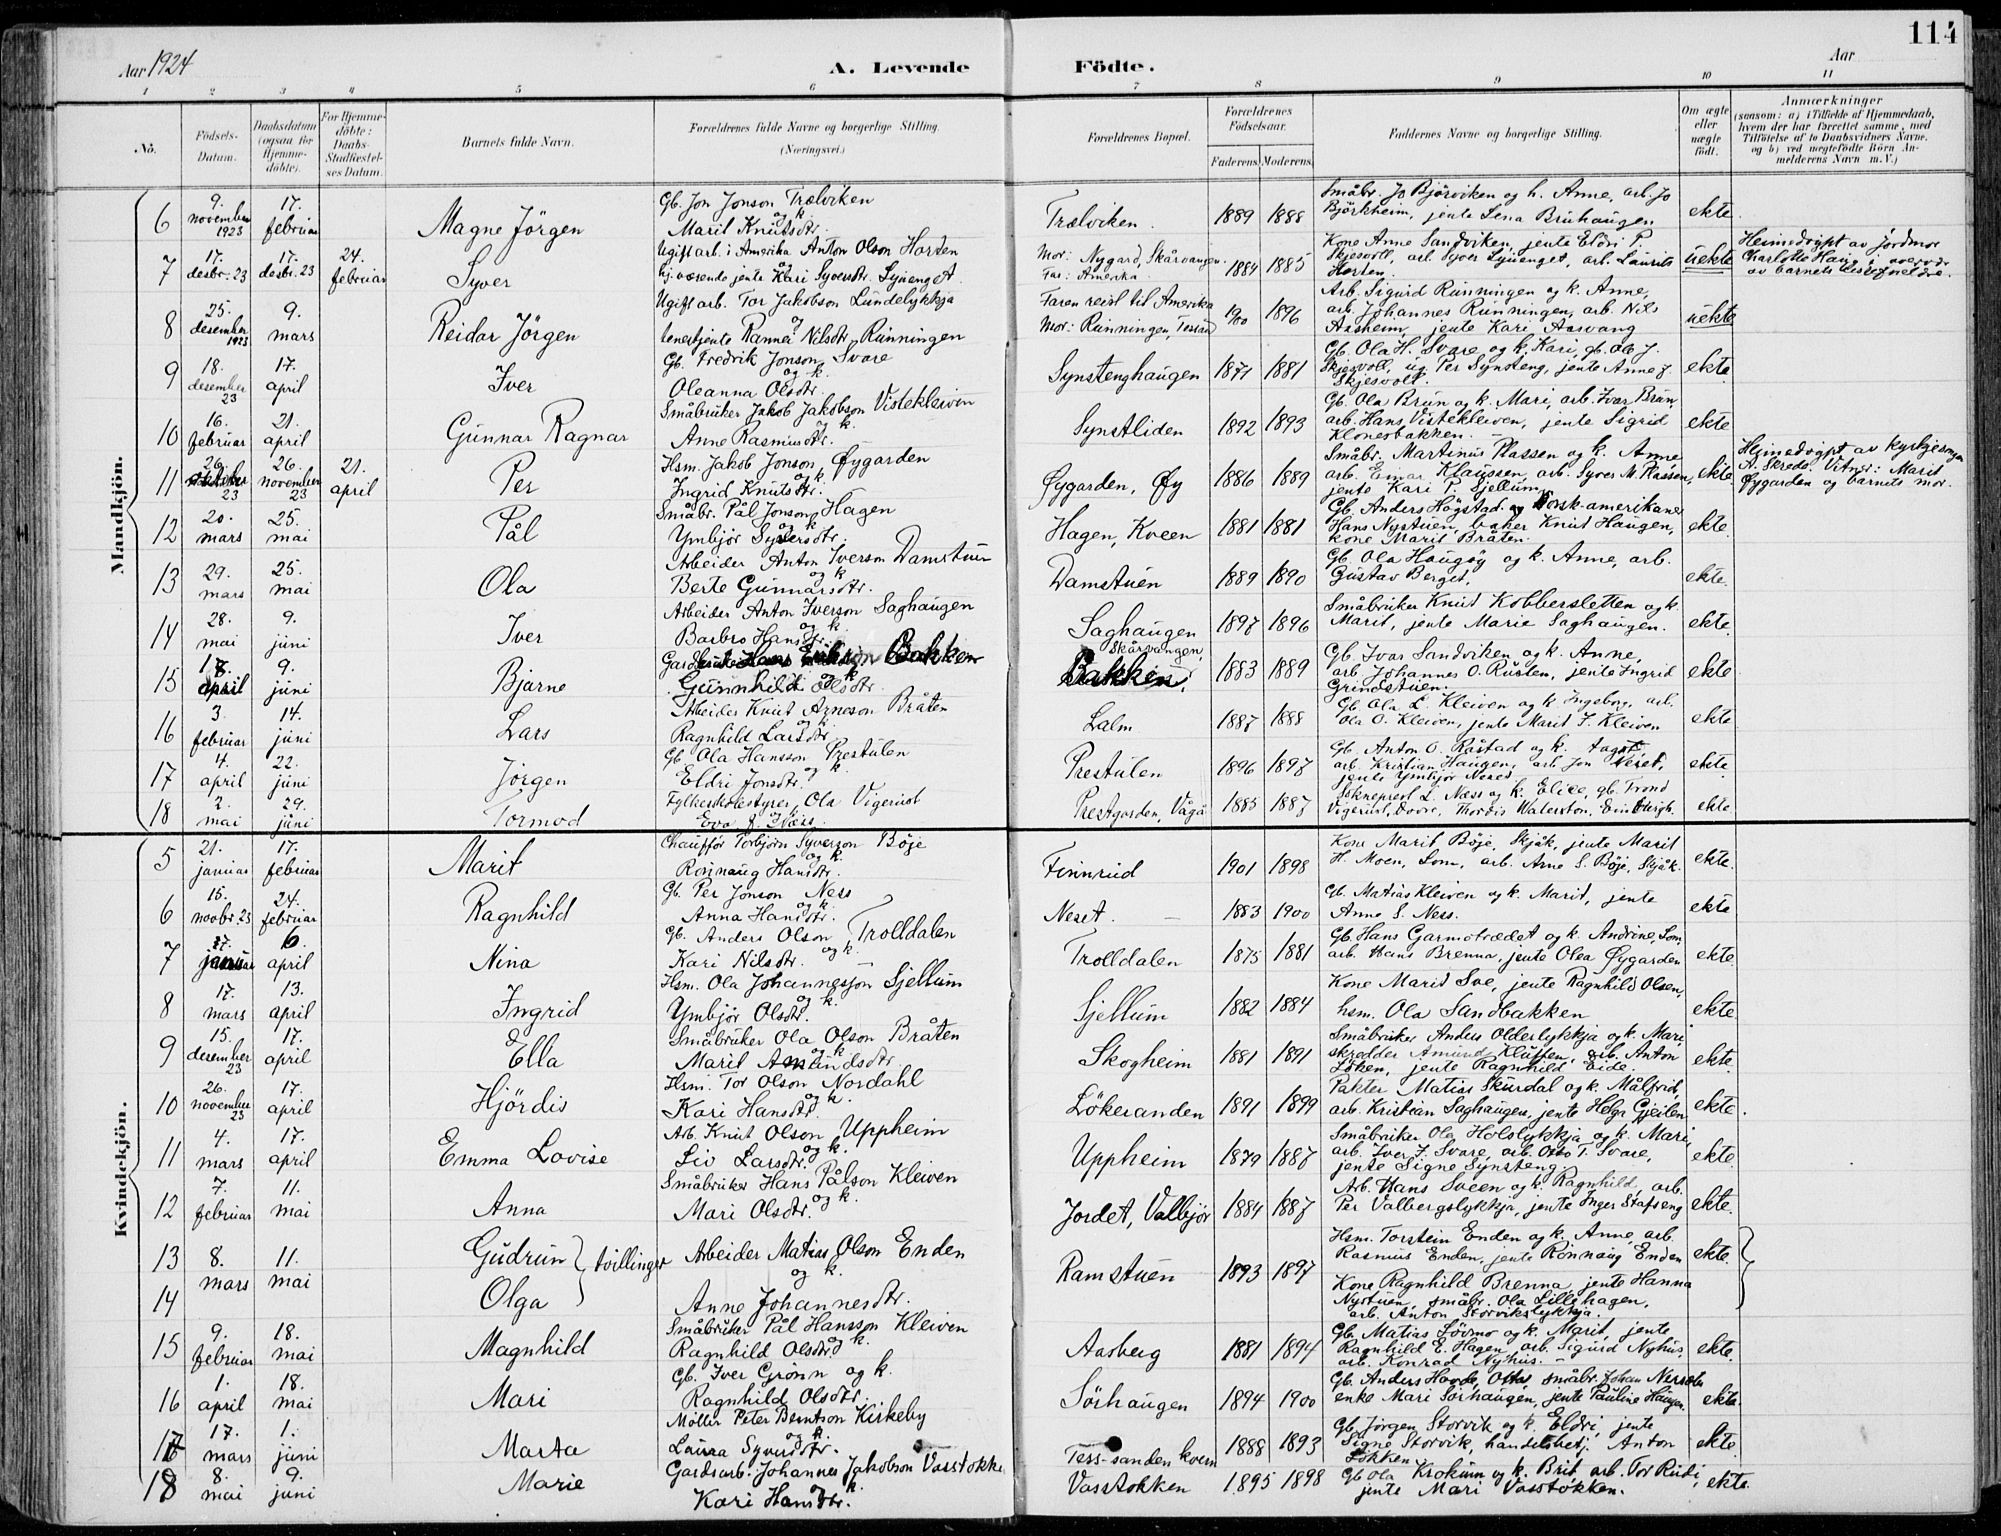 114
Aar 1924
A. Levende
Födte.
Aar
1 2 3 4 5 6 7 8 9 10 11
No.
Födsels-Datum.
Daabsdatum (ogsaa for Hjemme-döbte).
For Hjemme-döbte: Daabs-Stadfæstel-ses Datum.
Barnets fulde Navn.
Forældrenes fulde Navne og borgerlige Stilling. (Næringsvei.)
Forældrenes Bopæl.
Forældrenes Födselsaar.
Faderens. Moderens.
Faddernes Navne og borgerlige Stilling.
Om ægte eller uægte födt.
Anmærkninger (saasom: a) i Tilfælde af Hjemmedaab, hvem der har forrettet samme, med Tilföielse af to Daabsvidners Navne. og b) ved uægtefödte Börn An-melderens Navn m. V.)
Mandkjön.
6 9. november 1923 17. februar Magne Jörgen Gb. Jon Jonson Trælviken og k. Marit Knutsdtr. Trælviken 1889 1888 Småbr. Jo Bjørviken og h. Anne, arb. Jo Björkheim, jente Lena Bruhaugen ekte.
7 17. desbr. 23 17. desbr. 23 24. februar Syver Ugift arb. i Amerika Anton Olson Horten og hj.værende jente Kari Syversdtr. Synenget Mor: Nygard, Skårvangen. Far: Amerika. 1884 1885 Kone Anne Sandviken, jente Eldri P. Skjesvoll, arb. Syver Synenget, arb. Laurits Horten. uekte Heimedøypt av jordmor Charlotte Haug i overvær av barnets besteforeldre.
8 25. desember 1923 9. mars Reidar Jörgen Ugift arb. Tor Jakobson Lundelykkja og tenestjente Rannei Nilsdtr. Runningen Faren reist til Amerika Mor: Runningen, 1900 1896 Arb. Sigurd Runningen og k. Anne, arb. Johannes Runningen, arb. Nils Aasheim, jente Kari Aasvang uekte
9 18. desember 23 17. april Iver Gb. Fredrik Jonson Svare og k. Oleanna Olsdtr. Synstenghaugen 1871 1881 Gb. Ola H. Svare og k. Kari, gb. Ole J. Skjesvoll, ug. Per Synsteng, jente Anne J. Skjesvoll. ekte
10 16. februar 21. april Gunnar Ragnar Småbruker Jakob Jakobson Vistekleiven og k. Anne Rasmusdtr. Synstliden 1892 1893 Gb. Ola Brun og k. Mari, arb. Ivar Brun, arb. Hans Vistekleiven, jente Sigrid Klonesbakken. ekte
11 26. oktober 23 26. november 23 21. april Per Hsm. Jakob Jonson Øygarden og k. Ingrid Knutsdtr. Øygarden, Øy 1886 1889 Småbr. Martinus Plassen og k. Anne arb. Einar Klaussen, arb. Syver M. Plassen, jente Kari P. Sjellum. ekte. Heimedøypt av kyrkjesongar A. Skrede. Vitner: Marit Øygarden og barnets mor.
12 20. mars 25. mai Pål Småbr. Pål Jonson Hagen og k. Ymbjör Syversdtr. Hagen, Kveen 1881 1881 Gb. Anders Högstad og norsk-amerikaner Hans Nystuen, baker Knut Haugen, kone Marit Bråten. ekte.
13 29. mars 25. mai Ola Arbeider Anton Iverson Damstuen og k. Berte Gunnarsdtr. Damstuen 1889 1890 Gb. Ola Haugøy og k. Anne, arb. Gustav Berget. ekte.
14 28. mai 9. juni Iver Arbeider Anton Iverson Saghaugen og k. Barbro Hansdtr. Saghaugen 1897 1896 Småbruker Knut Kobbersletten og k. Marit, jente Marie Saghaugen. ekte.
15 18. april 9. juni Bjarne Gardbruker Hans Erikson Bakken og k. Gunnhild Olsdtr. Skårvangen, Bakken 1883 1889 Gb. Ivar Sandviken og k. Anne, arb. Johannes O. Rusten, jente Ingrid Grindstuen. ekte.
16 3. februar 14. juni Lars Arbeider Knut Arneson Bråten og k. Ragnhild Larsdtr. Lalm 1887 1888 Gb. Ola L. Kleiven og k. Ingeborg, arb. Ola O. Kleiven, jente Marit I. Kleiven ekte
17 4. april 22. juni Jörgen Gb. Ola Hansson Prestulen og k. Eldri Jonsdtr. Prestulen 1896 1897 Gb. Anton O. Råstad og k. Aagot, arb. Kristian Haugen, arb. Jon Neset, jente Ymbjör Neset. ekte.
18 2. mai 29. juni Tormod Fylkesskolestyrer Ola Vigerust og k. Eva J. Næss. Prestgarden, Vågå 1885 1887 Sokneprest L. Næss og k. Elise, gb. Trond Vigerust, Dovre, Thordis Waterston, ekte
Kvindekjön.
5 21. januar 17. februar Marit Chauffør Torbjörn Syverson Böje og k. Rönnaug Hansdtr. Finnrud 1901 1898 Kone Marit Böje, Skjåk, jente Marit H. Moen, Lom, arb. Arne S. Böje, Skjåk. ekte.
6 15. novbr. 23 24. februar Ragnhild Gb. Per Jonson Ness og k. Anna Hansdtr. Neset. 1883 1900 Gb. Matias Kleiven og k. Marit, jente Anne S. Ness. ekte
7 27. januar 6. april Nina Gb. Anders Olson Trolldalen og k. Kari Nilsdtr. Trolldalen 1875 1881 Gb. Hans Garmotrædet og k. Andrine, Lom arb. Hans Brenna, jente Olea Øygarden ekte.
8 17. mars 13. april Ingrid Hsm. Ola Johannesson Sjellum og k. Ymbjör Olsdtr. Sjellum 1882 1884 Kone Marit Sve, jente Ragnhild Olsen, hsm. Ola Sandbakken ekte.
9 15. desember 23 17. april Ella Småbruker Ola Olson Bråten og k. Marit Amundsdtr. Skogheim 1881 1891 Småbruker Anders Olderlykkja og k. Mari, skredder Amund Kluften, arb. Anton Löken, jente Ragnhild Eide. ekte.
10 26. november 23 17. april Hjördis Hsm. Tor Olson Nordahl og k. Kari Hansdtr. Lökeranden 1891 1899 Pakter Matias Skurdal og k. Målfrid, arb. Kristian Saghaugen, jente Helga Gjeilen ekte.
11 4. mars 17. april Emma Lovise Arb. Knut Olson Uppheim og k. Liv Larsdtr. Uppheim 1879 1887 Småbruker Ola Holslykkja og k. Mari, arb. Iver J. Svare, arb. Otto T. Svare, jente Signe Synsteng. ekte.
12 7. februar 11. mai Anna Småbruker Hans Pålson Kleiven og k. Mari Olsdtr. Jordet, Valbjör 1884 1887 Arb. Hans Sveen og k. Ragnhild, arb. Per Valbergslykkja, jente Inger Stafseng ekte.
13 8. mars 11. mai Gudrun tvillinger Arbeider Matias Olson Enden og k. Anne Johannesdtr. Ramstuen 1893 1897 Hsm. Torstein Enden og k. Anne, arb. Rasmus Enden, jente Rönnaug Enden ekte.
14 Olga Kone Ragnhild Brenna, jente Hanna Nystuen, småbr. Ola Lillehagen, arb. Anton Storvikslykkja.
15 9. februar 18. mai Magnhild Småbruker Pål Hansson Kleiven og k. Ragnhild Olsdtr. Aasberg 1881 1894 Gb. Matias Lövmo og k. Marit, jente Ragnhild E. Hagen, arb. Sigurd Nyhus, arb. Konrad Nyhus. ekte.
16 1. april 18. mai Mari Gb. Iver Grönn og k. Ragnhild Olsdtr. Sörhaugen 1894 1900 Gb. Anders Havde, Otta småbr. Johan enke Mari Sörhaugen, jente Pauline Haugen. ekte.
17 17. mars 1. juni Marta Möller Peter Berntson Kirkeby og k. Laura Syversdtr. Tess-sanden kvern 1888 1893 Gb. Jörgen Storvik og k. Eldri, jente Signe Storvik, handelsbetj. Anton Løkken ekte
18 8. mai 9. juni Marie Gardsarb. Johannes Jakobson Vasstokken og k. Kari Hansdtr. Vasstokken 1895 1898 Gb. Ola Krokum og k. Brit, arb. Tor Rudi, jente Mari Vasstokken. ekte.